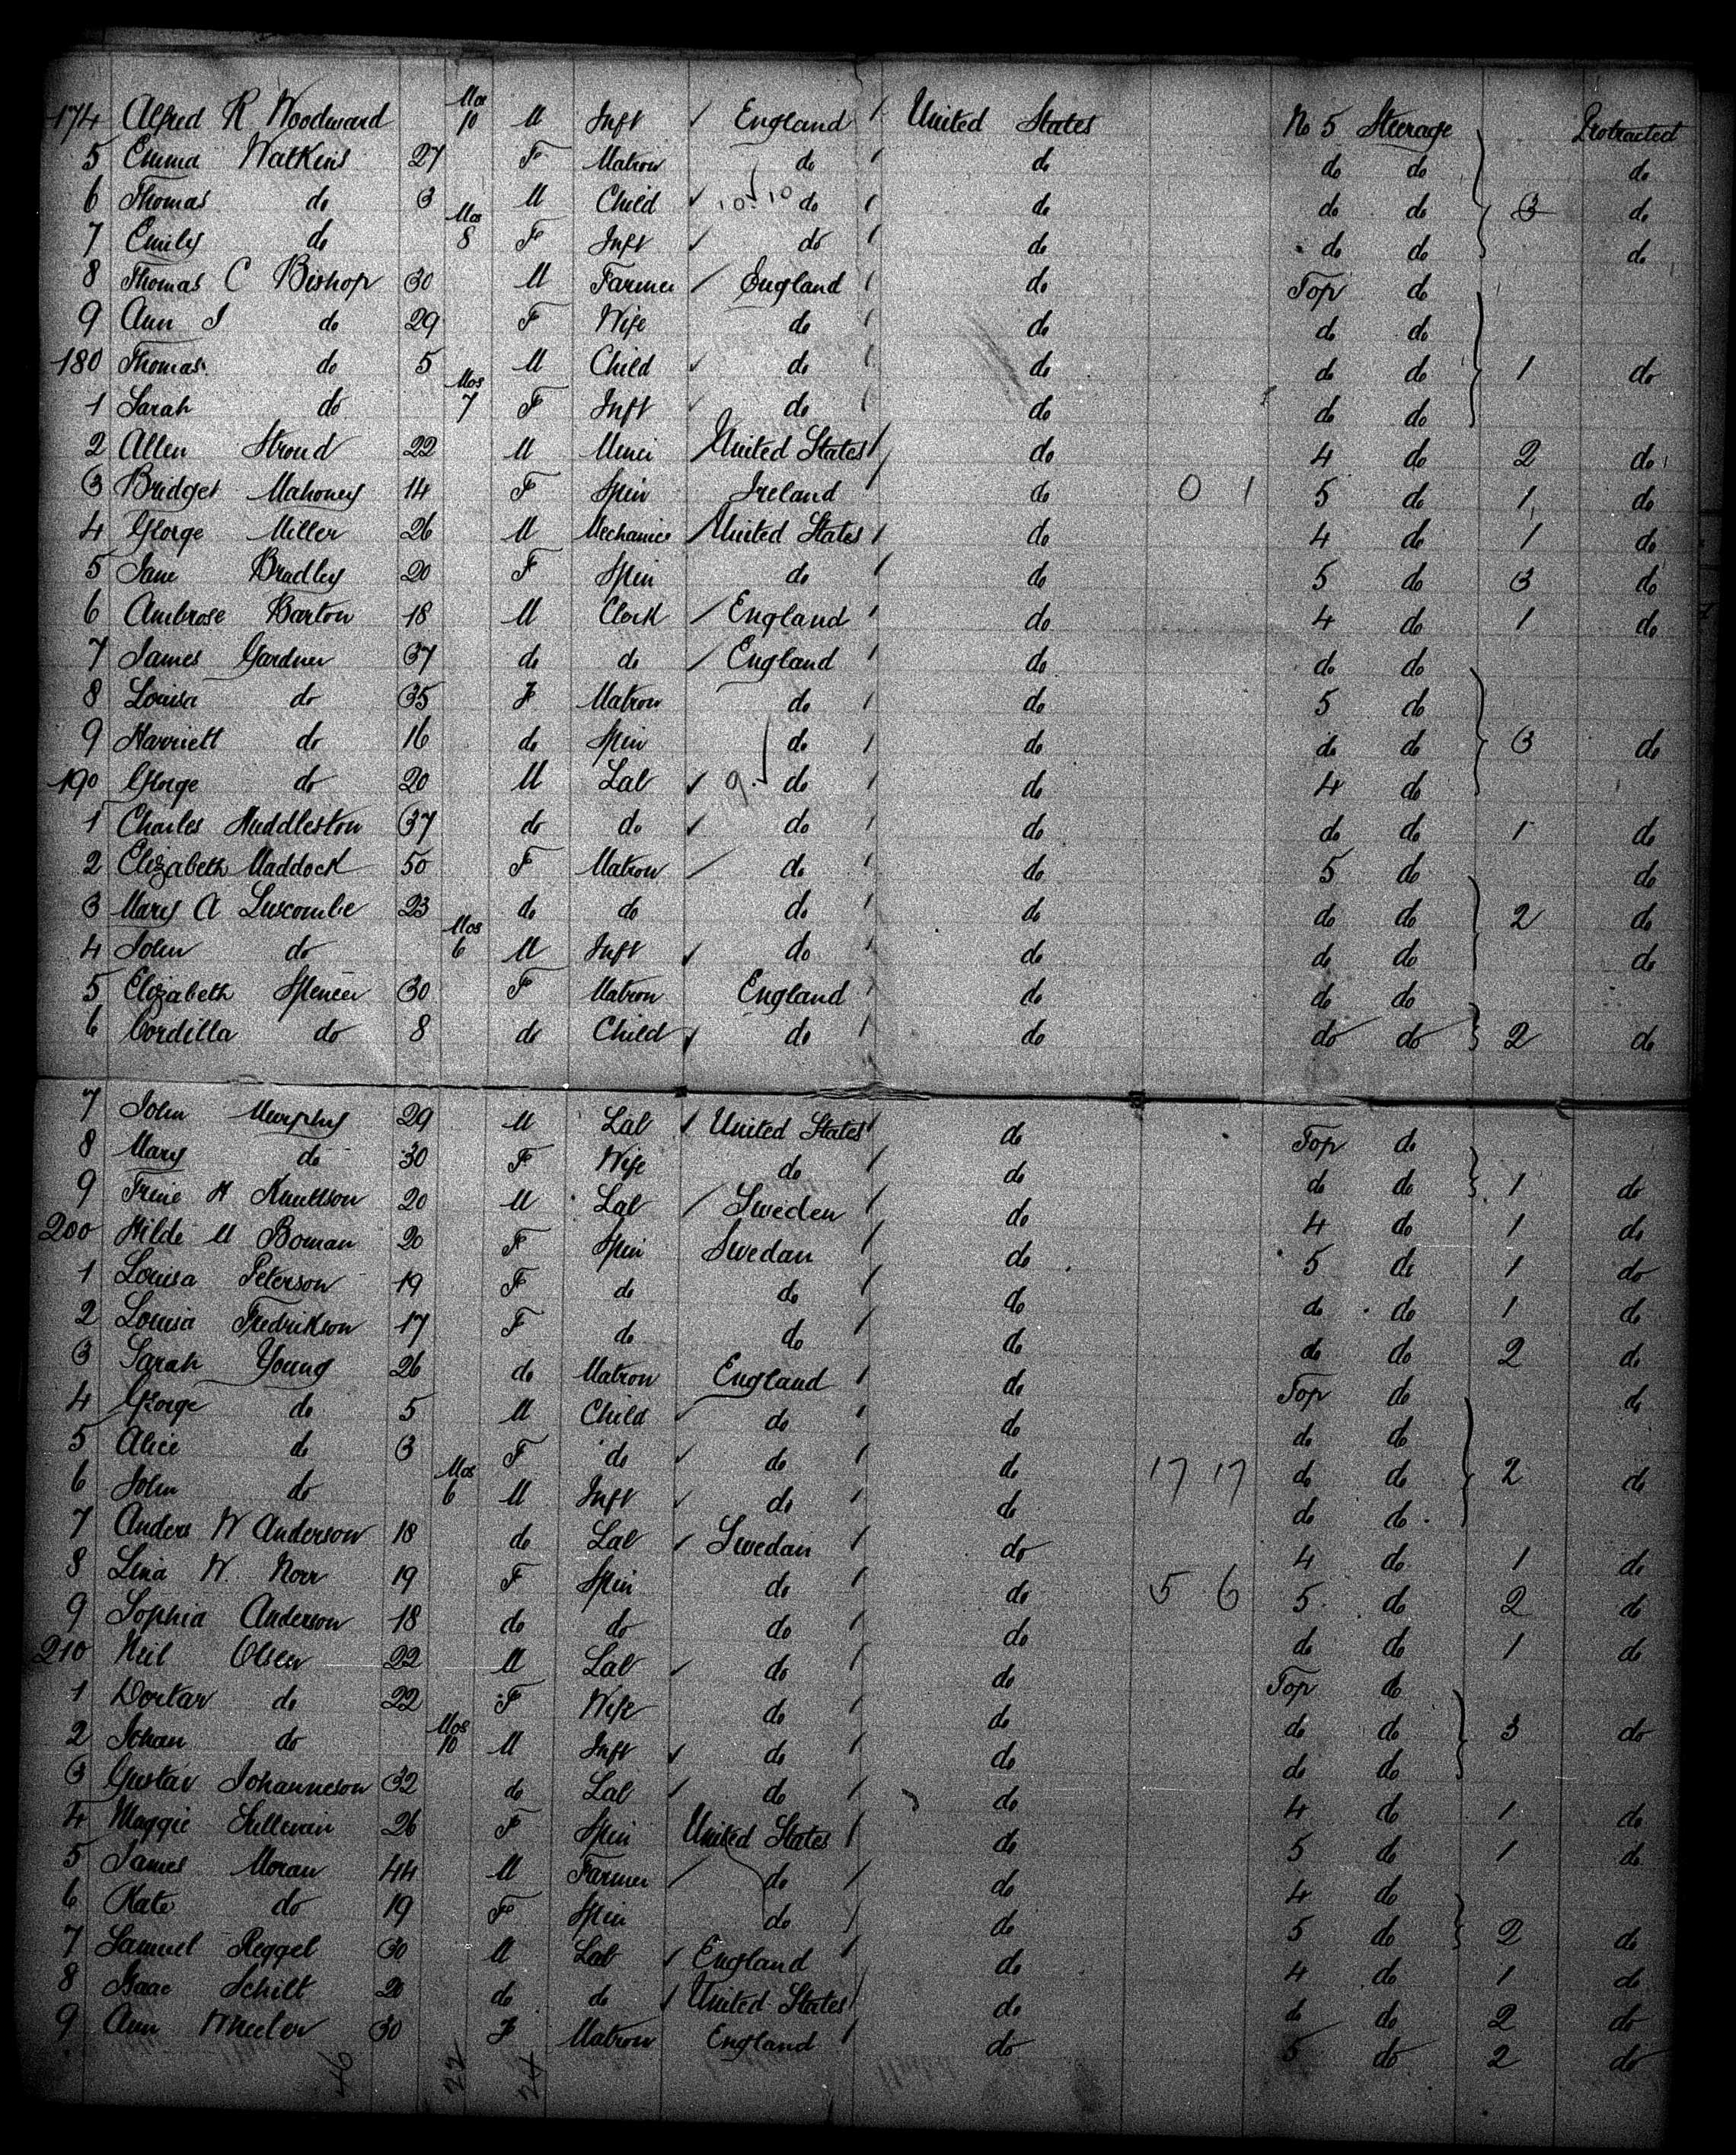 174 Alfred R Woodward Mos 10 M Inft ✓ England United States No 5 Steerage Protracted
5 Emma Watkins 27 F Matron do do do do do
6 Thomas do 3 M Child ✓ 10 10 do do do do 3 do
7 Emily do Mos 8 F Inft ✓ do do do do do
8 Thomas C Bishop 30 M Farmer England do Top do
9 Ann J do 29 F Wife do do do do
180 Thomas do 5 M Child ✓ do do do do 1 do
1 Sarah do Mos 7 F Inft ✓ do do do do
2 Allen Stroud 22 M Miner United States do 4 do 2 do
3 Bridget Mahoney 14 F Spin Ireland do 0 1 5 do 1 do
4 George Miller 26 M Mechanic United States do 4 do 1 do
5 Jane Bradley 20 F Spin do do 5 do 3 do
6 Ambrose Barton 18 M Clerk England do 4 do 1 do
7 James Gardner 37 do do England do do do
8 Louisa do 35 F Matron do do 5 do
9 Harriett do 16 do Spin do do do do 3 do
190 George do 20 M Lab ✓ 9 do do 4 do
1 Charles Huddleston 37 do do ✓ do do do do 1 do
2 Elizabeth Maddock 50 F Matron do do 5 do do
3 Mary A Luscombe 23 do do do do do do 2 do
4 John do Mos 6 M Inft ✓ do do do do do
5 Elizabeth Spencer 30 F Matron England do do do
6 Cordilla do 8 do Child ✓ do do do do 2 do
7 John Murphy 29 M Lab ✓ United States do Top do
8 Mary do 30 F Wife do do do do 1 do
9 Trine H Knuttson 20 M Lab Sweden do 4 do 1 do
200 Hilde M Boman 20 F Spin Swedan do 5 do 1 do
1 Louisa Peterson 19 F do do do do do 1 do
2 Louisa Fredrikson 17 F do do do do do 2 do
3 Sarah Young 26 do Matron England do Top do do
4 George do 5 M Child ✓ do do do do
5 Alice do 3 F do ✓ do do 17 17 do do 2 do
6 John do Mos 6 M Inft ✓ do do do do
7 Anders W Anderson 18 do Lab ✓ Swedan do 4 do 1 do
8 Lina W Norr 19 F Spin do do 5 6 5 do 2 do
9 Sophia Anderson 18 do do do do do do 1 do
210 Neil Olsen 22 M Lab ✓ do do Top do
1 Dortar do 22 F Wife do do do do 3 do
2 Johan do Mos 10 M Inft ✓ do do do do
3 Gustav Johanneson 32 do Lab do do 4 do 1 do
4 Maggie Sullevin 26 F Spin United States do 5 do 1 do
5 James Moran 44 M Farmer do do 4 do
6 Kate do 19 F Spin do do 5 do 2 do
7 Samuel Reggel 30 M Lab ✓ England do 4 do 1 do
8 Isaac Schilt 20 do do ✓ United States do do do 2 do
9 Ann Wheeler 30 F Matron England do 5 do 2 do
46 22 24